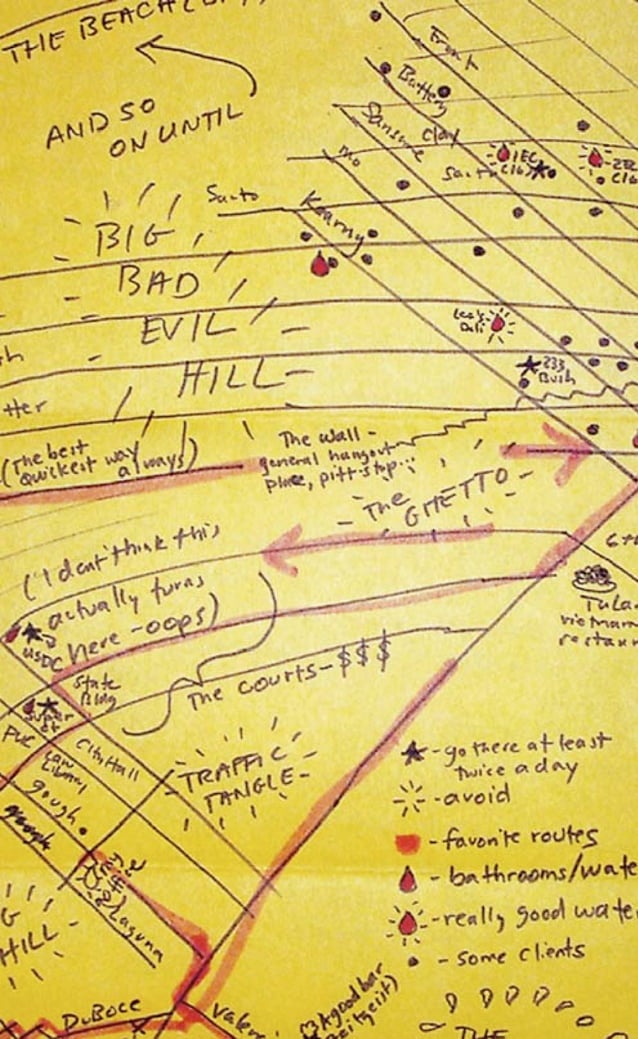 THE BEACH
AND SO
ON UNTIL
Front
Battery
Sansome
Clay
Mo
1EC
Kearny
BIG
BAD
EVIL
HILL
Lee's
Deli
333
Bush
tter
(The best
quickest way
always)
The wall -
general hangout
place, pitt-stop...
- The
GHETTO -
(I don't think this
actually turns
here - oops)
USDC
State
Bldg
The Courts - $$$
Tula
vietnam
restaur
PUC
City Hall
Law
Library
Gough
TRAFFIC
TANGLE -
Laguna
G
HILL -
DuBoce
Valen
(A good bar
Zeitgeist)
- go there at least
twice a day
- avoid
- favorite routes
- bathrooms/wate
- really good water
- some clients
THE